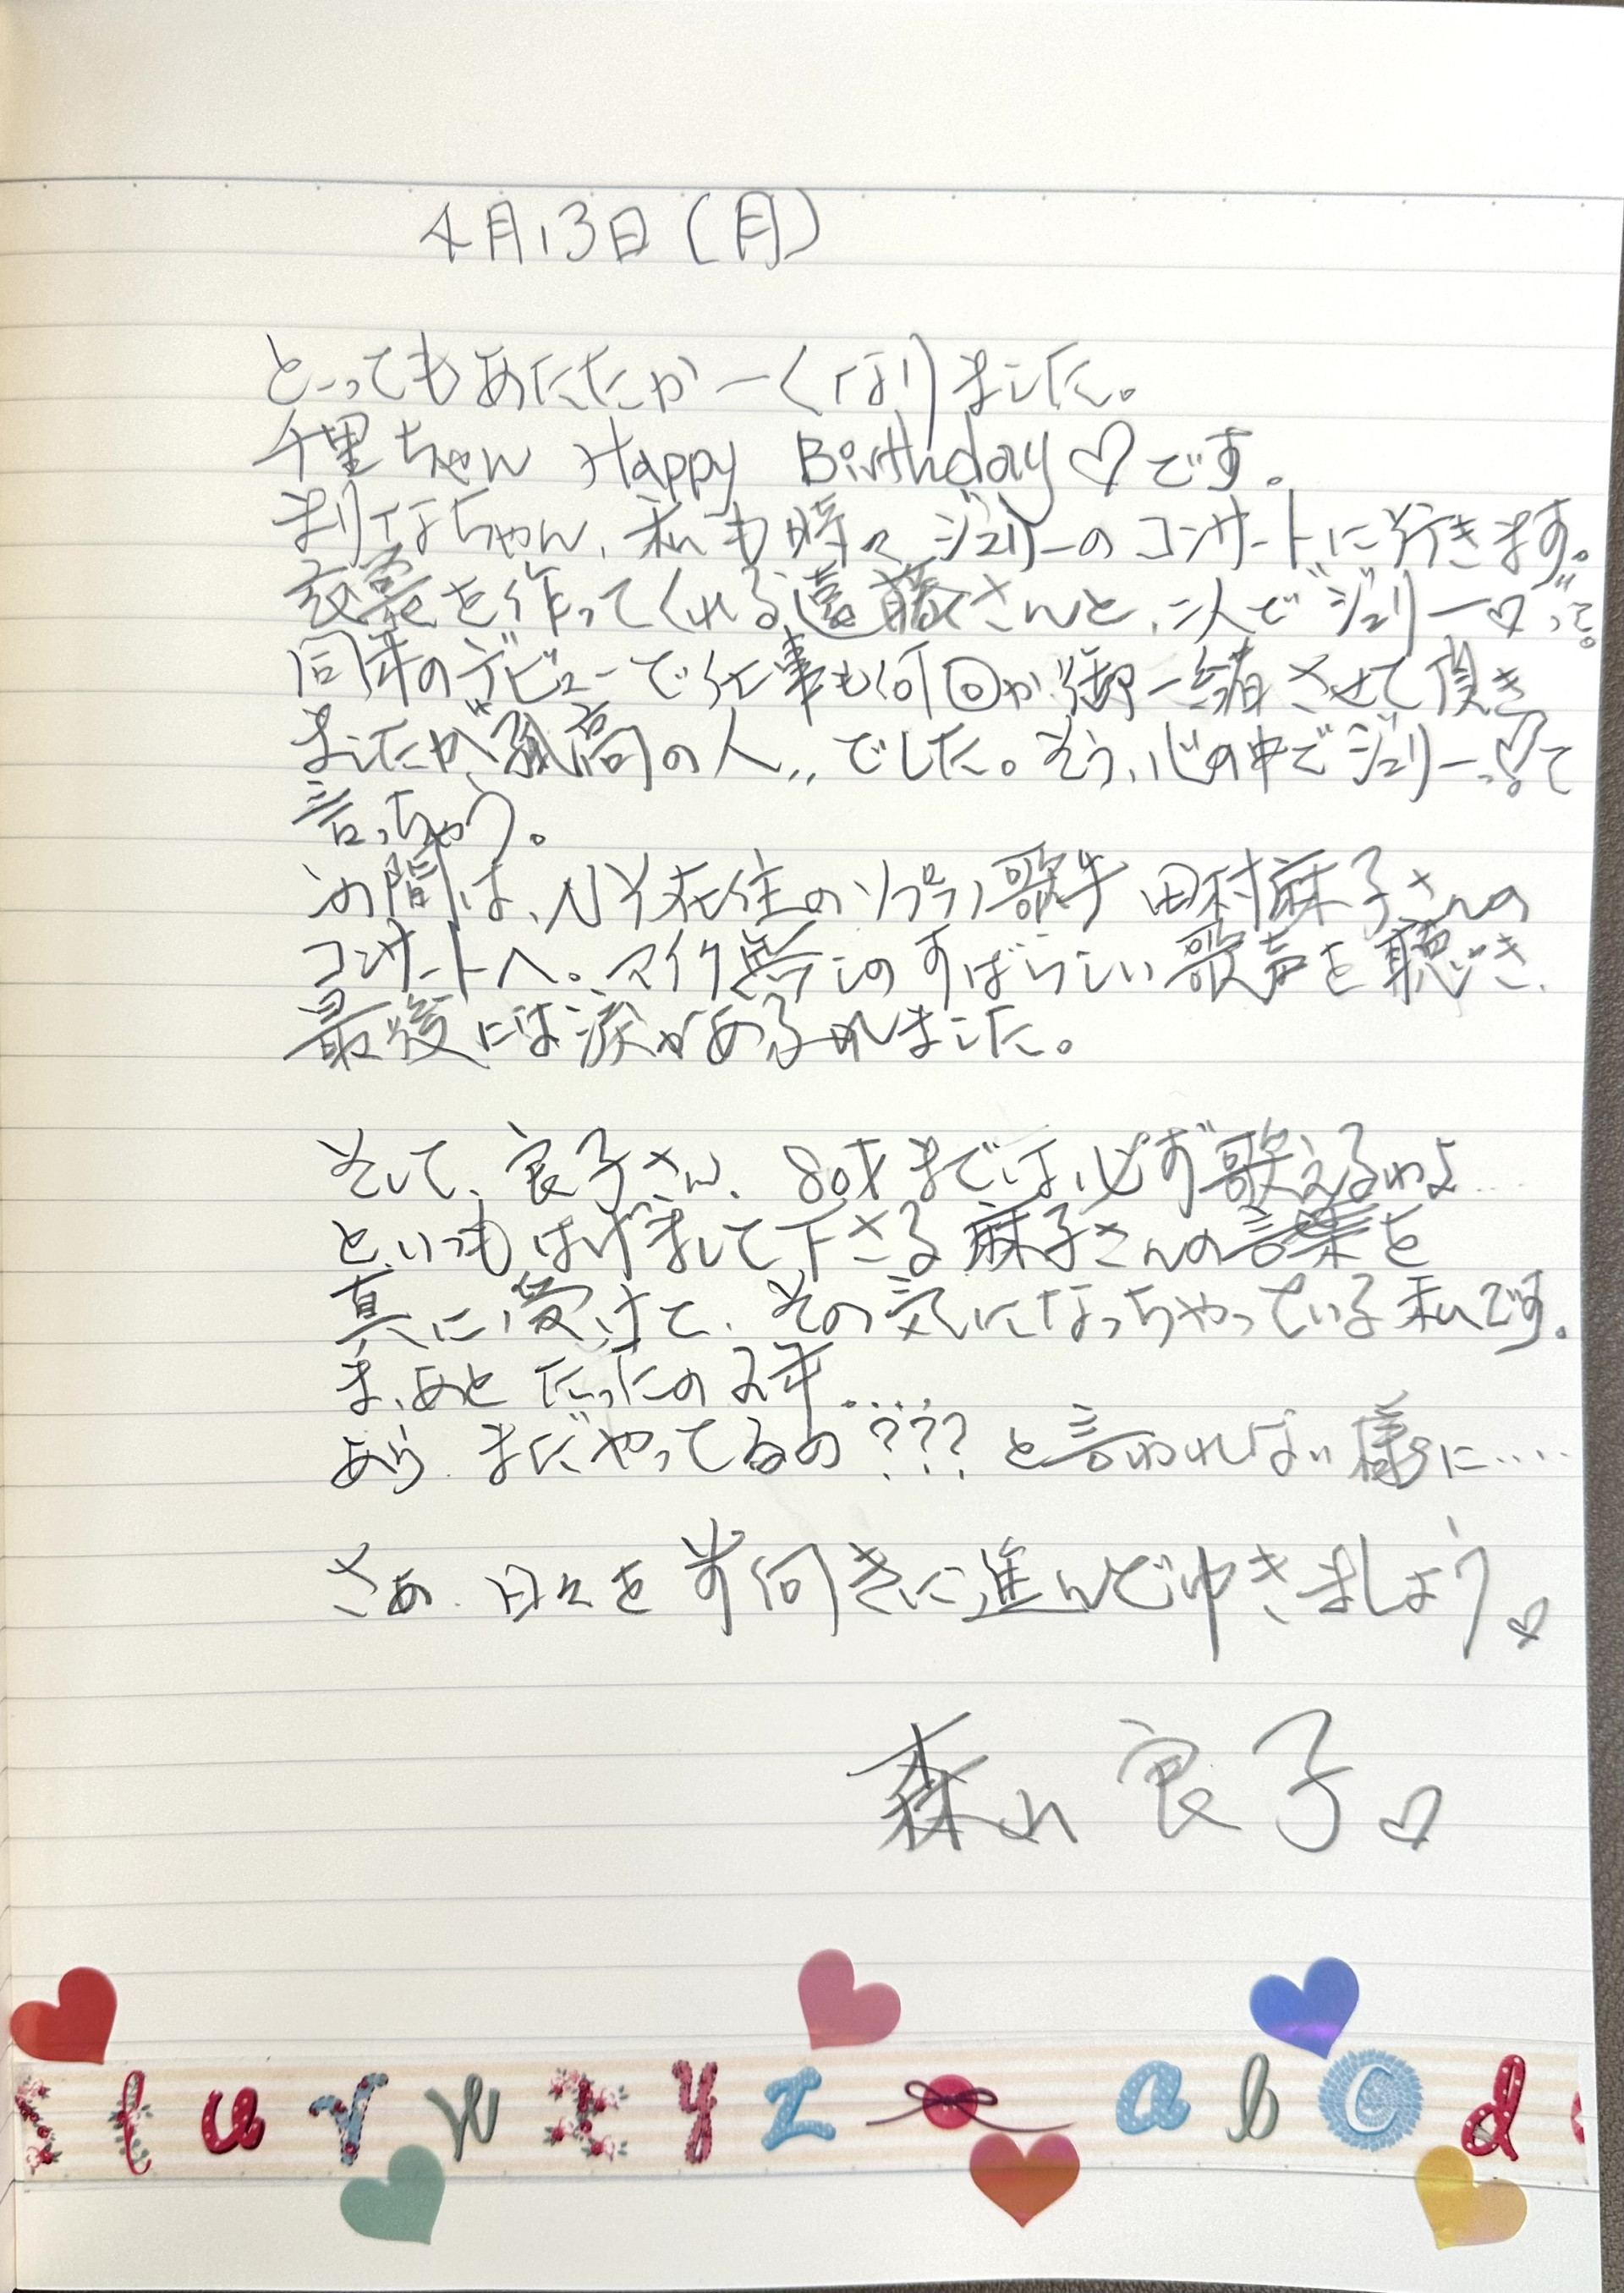 4月13日(月)
とってもあたたか一くなりました。
千里ちゃん Happy Birthday♡です。
まりなちゃん、私も時々ジュリーのコンサートに行きます。
衣裳を作ってくれる遠藤さんと、二人で"ジュリー♡"って。
同年のデビューで仕事も何回か御一緒させて頂き
ましたが"孤高の人〟でした。もう、心の中でジュリーっ♡て
言っちゃう。
この間は、NY在住のソプラノ歌手 田村麻子さんの
コンサートへ。マイク無しのすばらしい歌声を聴き、
最後には涙があふれました。
そして、良子さん、80才までは必ず歌えるわよ…
といつもはげまして下さる麻子さんの言葉を
真に受けて、その気になっちゃっている私です。
ま、あと たったの2年....
あら、まだやってるの???と言われない様に....
さあ、日々を前向きに進んでゆきましょう♡
森山良子♡
t u v w x y z a b c d